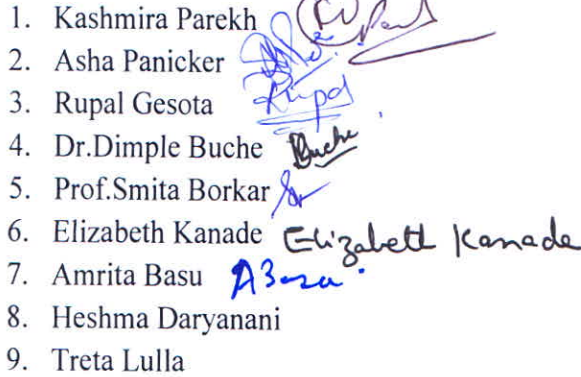 1. Kashmira Parekh
2. Asha Panicker
3. Rupal Gesota Rupal
4. Dr.Dimple Buche Buche
5. Prof.Smita Borkar
6. Elizabeth Kanade Elizabeth Kanade
7. Amrita Basu ABasu.
8. Heshma Daryanani
9. Treta Lulla